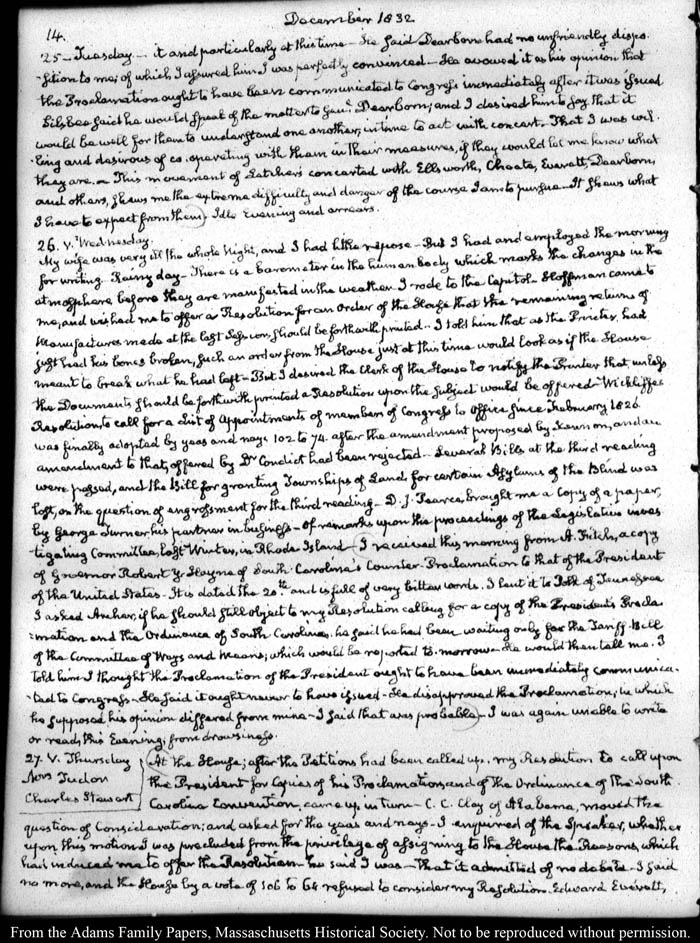 December 1832.
14.
25 — Tuesday — it and particularly at this time — He said Dearborn had no unfriendly dispo-
-sition to me; of which I assured him I was perfectly convinced — He avowed it as his opinion that
the Proclamation ought to have been communicated to Congress immediately after it was issued
Silsbee said he would speak of the matter to Genl. Dearborn; and I desired him to say that it
would be well for them to understand one another, in time to act with concert. That I was wil-
ling and desirous of co-operating with them in their measures, if they would let me know what
they are. — This movement of Letcher's concerted with Ellsworth, Choate, Everett, Dearborn,
and others, shews me the extreme difficulty and danger of the course I am to pursue — It shews what
I have to expect from them — Idle Evening and arrears.
26. V. Wednesday.
My wife was very ill the whole Night, and I had little repose — But I had and employed the morning
for writing. Rainy day — There is a barometer in the human body which marks the changes in the
atmosphere before they are manifested in the weather. I rode to the Capitol. Hoffman came to
me, and wished me to offer a Resolution for an Order of the House that the remaining returns of
Manufactures made at the last Session, should be forthwith printed — I told him that as the Printer had
just had his bones broken, such an order from the House just at this time would look as if the House
meant to break what he had left — But I desired the Clerk of the House to notify the Printer that unless
the Documents should be forthwith printed a Resolution upon the subject would be offered — Wickliffe's
Resolution to call for a List of Appointments of members of Congress to Office since February 1826
was finally adopted by yeas and nays 102 to 74. after the amendment proposed by Kennon, and an
amendment to that, offered by Dr Condict had been rejected — Several Bills at the third reading
were passed, and the Bill for granting Townships of Land for certain Asylums of the Blind was
lost, on the question of engrossment for the third reading — D. J. Pearce, brought me a Copy of a paper,
by George Turner his partner in business — of remarks upon the proceedings of the Legislative inves-
tigating Committee, last Winter, in Rhode Island — I received this morning from A. Fitch, a copy
of Governor Robert Y. Hayne of South Carolina's Counter-Proclamation to that of the President
of the United States — It is dated the 20th and is full of very bitter words. I lent it to Polk of Tennessee
I asked Archer, if he should still object to my Resolution calling for a copy of the President's Procla-
-mation and the Ordinance of South Carolina. he said he had been waiting only for the Tariff Bill
of the Committee of Ways and Means, which would be reported to-morrow — He would then tell me. I
told him I thought the Proclamation of the President ought to have been immediately communica-
-ted to Congress — He said it ought never to have issued — He disapproved the Proclamation, in which
he supposed his opinion differed from mine — I said that was probable — I was again unable to write
or read, this Evening, from drowsiness.
27. V. Thursday
Mrs Tudor
Charles Stewart
At the House; after the Petitions had been called up, my Resolution to call upon
the President for Copies of his Proclamation, and of the Ordinance of the South
Carolina Convention, came up in turn — C. C. Clay of Alabama, moved the
question of Consideration; and asked for the yeas and nays — I enquired of the Speaker, whether
upon this motion I was precluded from the privilege of assigning to the House the Reasons, which
had induced me to offer the Resolution — he said I was — That it admitted of no debate. I said
no more, and the House by a vote of 106 to 64 refused to consider my Resolution. Edward Everett,
From the Adams Family Papers, Massachusetts Historical Society. Not to be reproduced without permission.